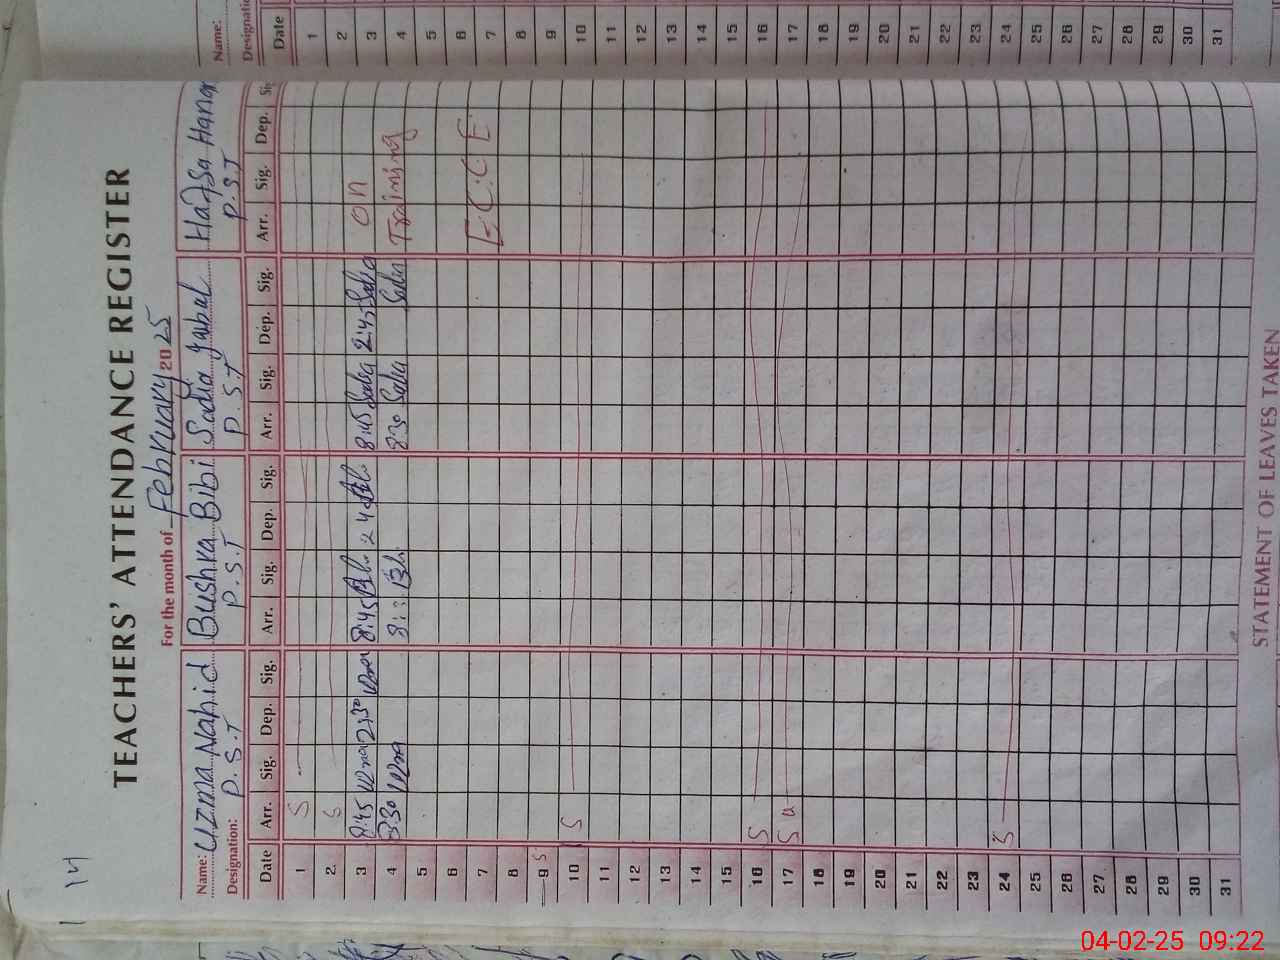 14
TEACHERS' ATTENDANCE REGISTER
For the month of February 2025
Name: Uzma Nahid Bushra Bibi Sadia Hafsa
Designation: P.S.T P.S.T P.S.T P.S.T
Date Arr. Sig. Dep. Sig. Arr. Sig. Dep. Sig. Arr. Sig. Dep. Sig. Arr. Sig. Dep. Sig.
1 S
2 S
3 8:45 Uzma 2:30 Uzma 8:45 2 4 8:45 Sadia 2:45 Sadia on
4 8:30 Uzma 8:30 Sadia Sadia Training
5
6
7 E.C.C.E
8
9 S
10 S
11
12
13
14
15
16 S
17 S
18
19
20
21
22
23
24 S
25
26
27
28
29
30
31
STATEMENT OF LEAVES TAKEN
Name:
Designatio
Date
1
2
3
4
5
6
7
8
9
10
11
12
13
14
15
16
17
18
19
20
21
22
23
24
25
26
27
28
29
30
31
04-02-25 09:22